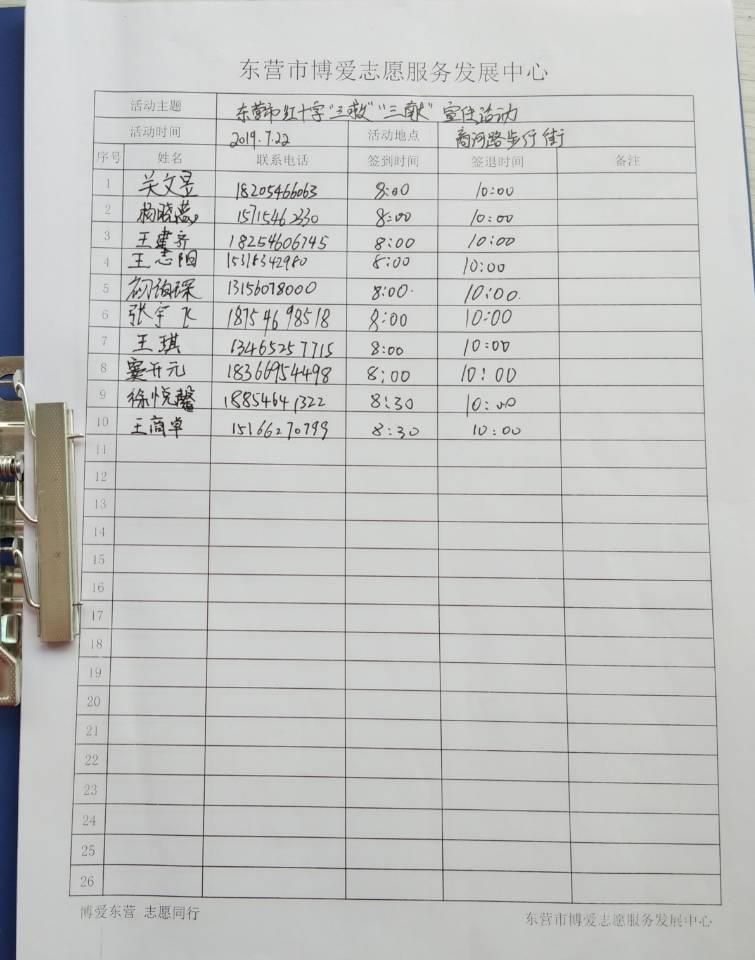 东营市博爱志愿服务发展中心
活动主题 东营市红十字“三救”“三献”宣传活动
活动时间 2019.7.22 活动地点 商河路步行街
序号 姓名 联系电话 签到时间 签退时间 备注
1 关文昱 18205466063 8:00 10:00
2 杨晓燕 15715462330 8:00 10:00
3 王建齐 18254606745 8:00 10:00
4 王志阳 15315342980 8:00 10:00
5 13156078000 8:00 10:00
6 张宇飞 18754698518 8:00 10:00
7 王琪 13465257715 8:00 10:00
8 窦开元 18366954498 8:00 10:00
9 徐悦馨 18854641322 8:30 10:00
10 王商卓 15166270799 8:30 10:00
11
12
13
14
15
16
17
18
19
20
21
22
23
24
25
26
博爱东营 志愿同行 东营市博爱志愿服务发展中心